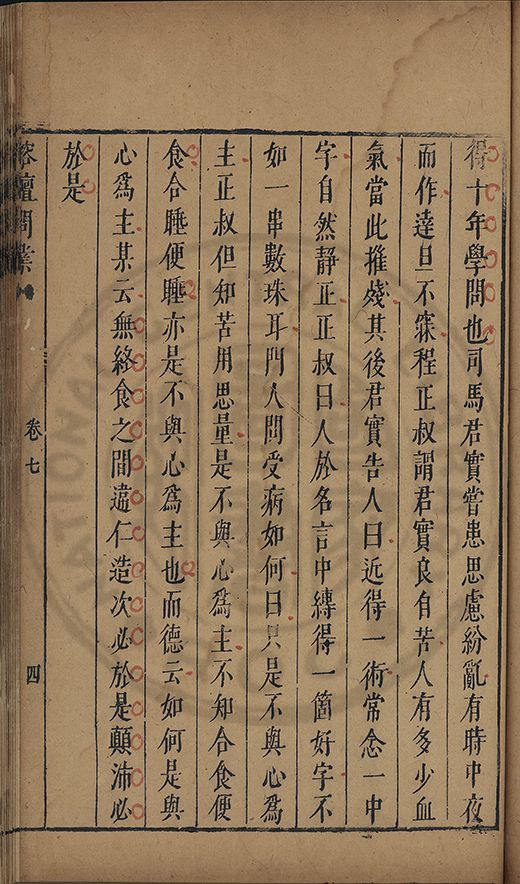 得十年學問也司馬君實嘗患思慮紛亂有時中夜
而作達旦不寐程正叔謂君實良自苦人有多少血
氣當此摧殘其後君實告人曰近得一術常念一中
字自然靜正正叔曰人於名言中縛得一箇好字不
如一串數珠耳門人問受病如何曰只是不與心為
主正叔但知苦用思量是不與心為主不知合食便
食合睡便睡亦是不與心為主也而德云如何是與
心為主某云無終食之間違仁造次必於是顛沛必
於是
榕壇問業 卷七 四